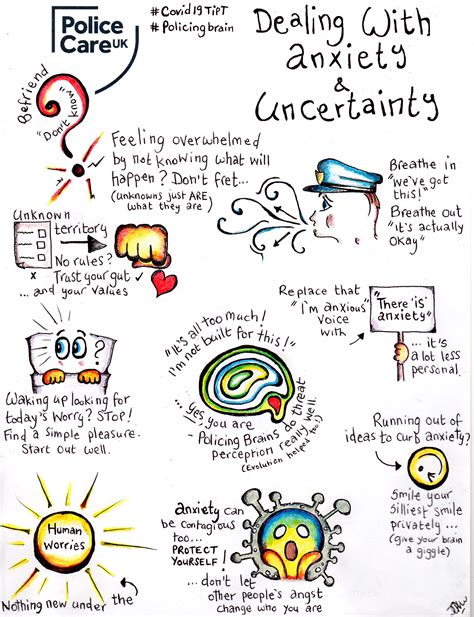 Police
Care UK
#Covid19TiPT
#Policingbrain
Dealing With
anxiety
&
Uncertainty
Befriend
"Don't know"
Feeling overwhelmed
by not knowing what will
happen? Don't fret...
(unknowns just ARE
what they are)
Breathe in
"we've got
this!"
Breathe out
"it's actually
OKay"
Unknown
territory
No rules?
x Trust your gut ✓
... and your values
"It's all too much!
I'm not built for this!"
... Yes, you are
- Policing Brains do threat
perception really well.
(Evolution helped too!)
Replace that
"I'm anxious"
Voice
with
"There 'is'
anxiety"
... it's
a lot less
personal.
?
Waking up looking for
today's Worry? STOP!
Find a simple pleasure-
Start out well.
Running out of
ideas to curb anxiety?
Smile your
silliest smile
privately...
(give your brain
a giggle)
Human
worries
Nothing new under the
anxiety can
be contagious
too...
PROTECT
YOURSELF!
...don't let
other people's angst
change who you are